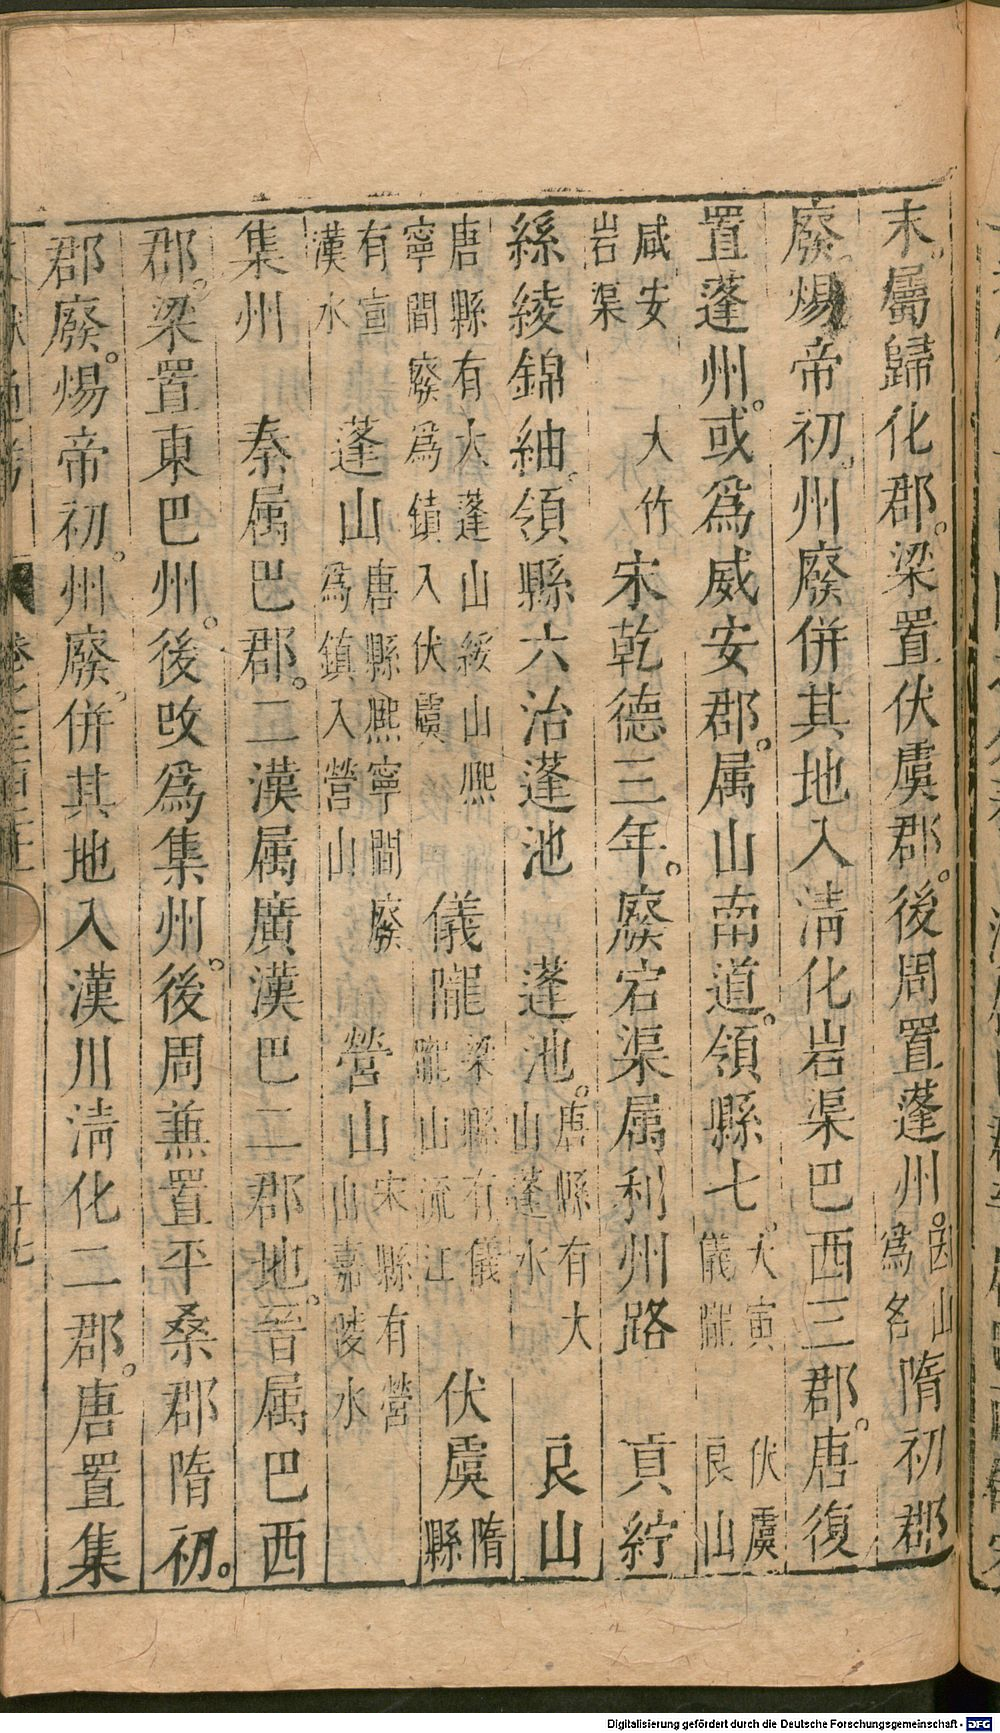 末。屬歸化郡。梁置伏虞郡。後周置蓬州。因山為名隋初郡
廢。煬帝初。州廢併其地入清化岩渠巴西三郡。唐復
置蓬州。或為威安郡。属山南道。領縣七。大寅 儀隴 伏虞 良山
咸安 岩渠 大竹 宋乾德三年。廢宕渠属利州路 貢紵
絲綾錦紬。領縣六治蓬池 蓬池。唐縣有大山蓬水 良山
唐縣有大蓬山綏山熈寧間廢為鎮入伏虞 儀隴梁縣有儀隴山流江 伏虞隋縣
有宣漢水 蓬山唐縣熈寧間廢為鎮入營山 營山宋縣有營山嘉陵水
集州 秦属巴郡。二漢属廣漢巴二郡地。晉属巴西
郡。梁置東巴州。後改為集州。後周兼置平桑郡隋初。
郡廢。煬帝初。州廢。併其地入漢川清化二郡。唐置集
十七
Digitalisierung gefördert durch die Deutsche Forschungsgemeinschaft - DFG